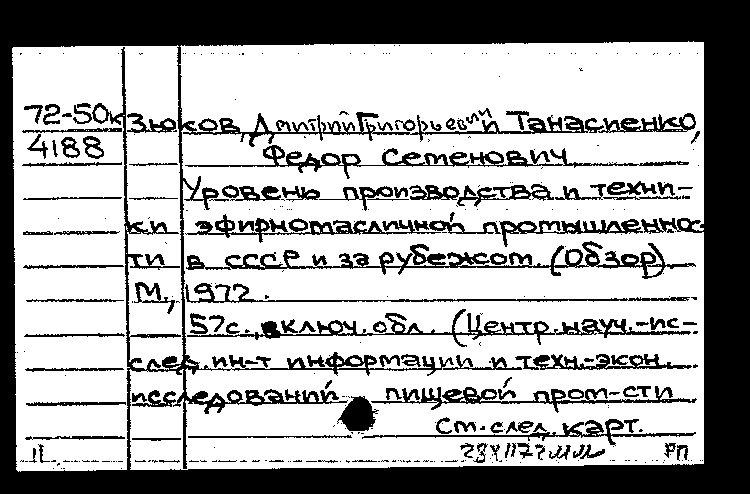 72-50к Зюков, Дмитрий Григорьевич и Танасиенко,
4188 Федор Семенович.
Уровень производства и техни-
ки эфирномасличной промышленнос-
ти в СССР и за рубежом. (Обзор).
М., 1972.
57с., включ. обл. (Центр. науч.-ис-
след. ин-т информации и техн.-экон.
исследований пищевой пром-сти
См. след. карт.
11 РП